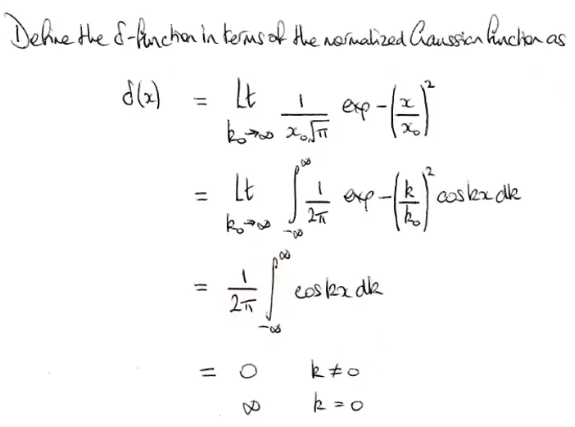 Define the δ-function in terms of the normalized Gaussian function as
δ(x) = Lt k₀→∞ 1/(x₀√π) exp −(x/x₀)²
= Lt k₀→∞ ∫_{−∞}^{∞} 1/(2π) exp −(k/k₀)² cos kx dk
= 1/(2π) ∫_{−∞}^{∞} cos kx dk
= 0 k ≠ 0
∞ k = 0